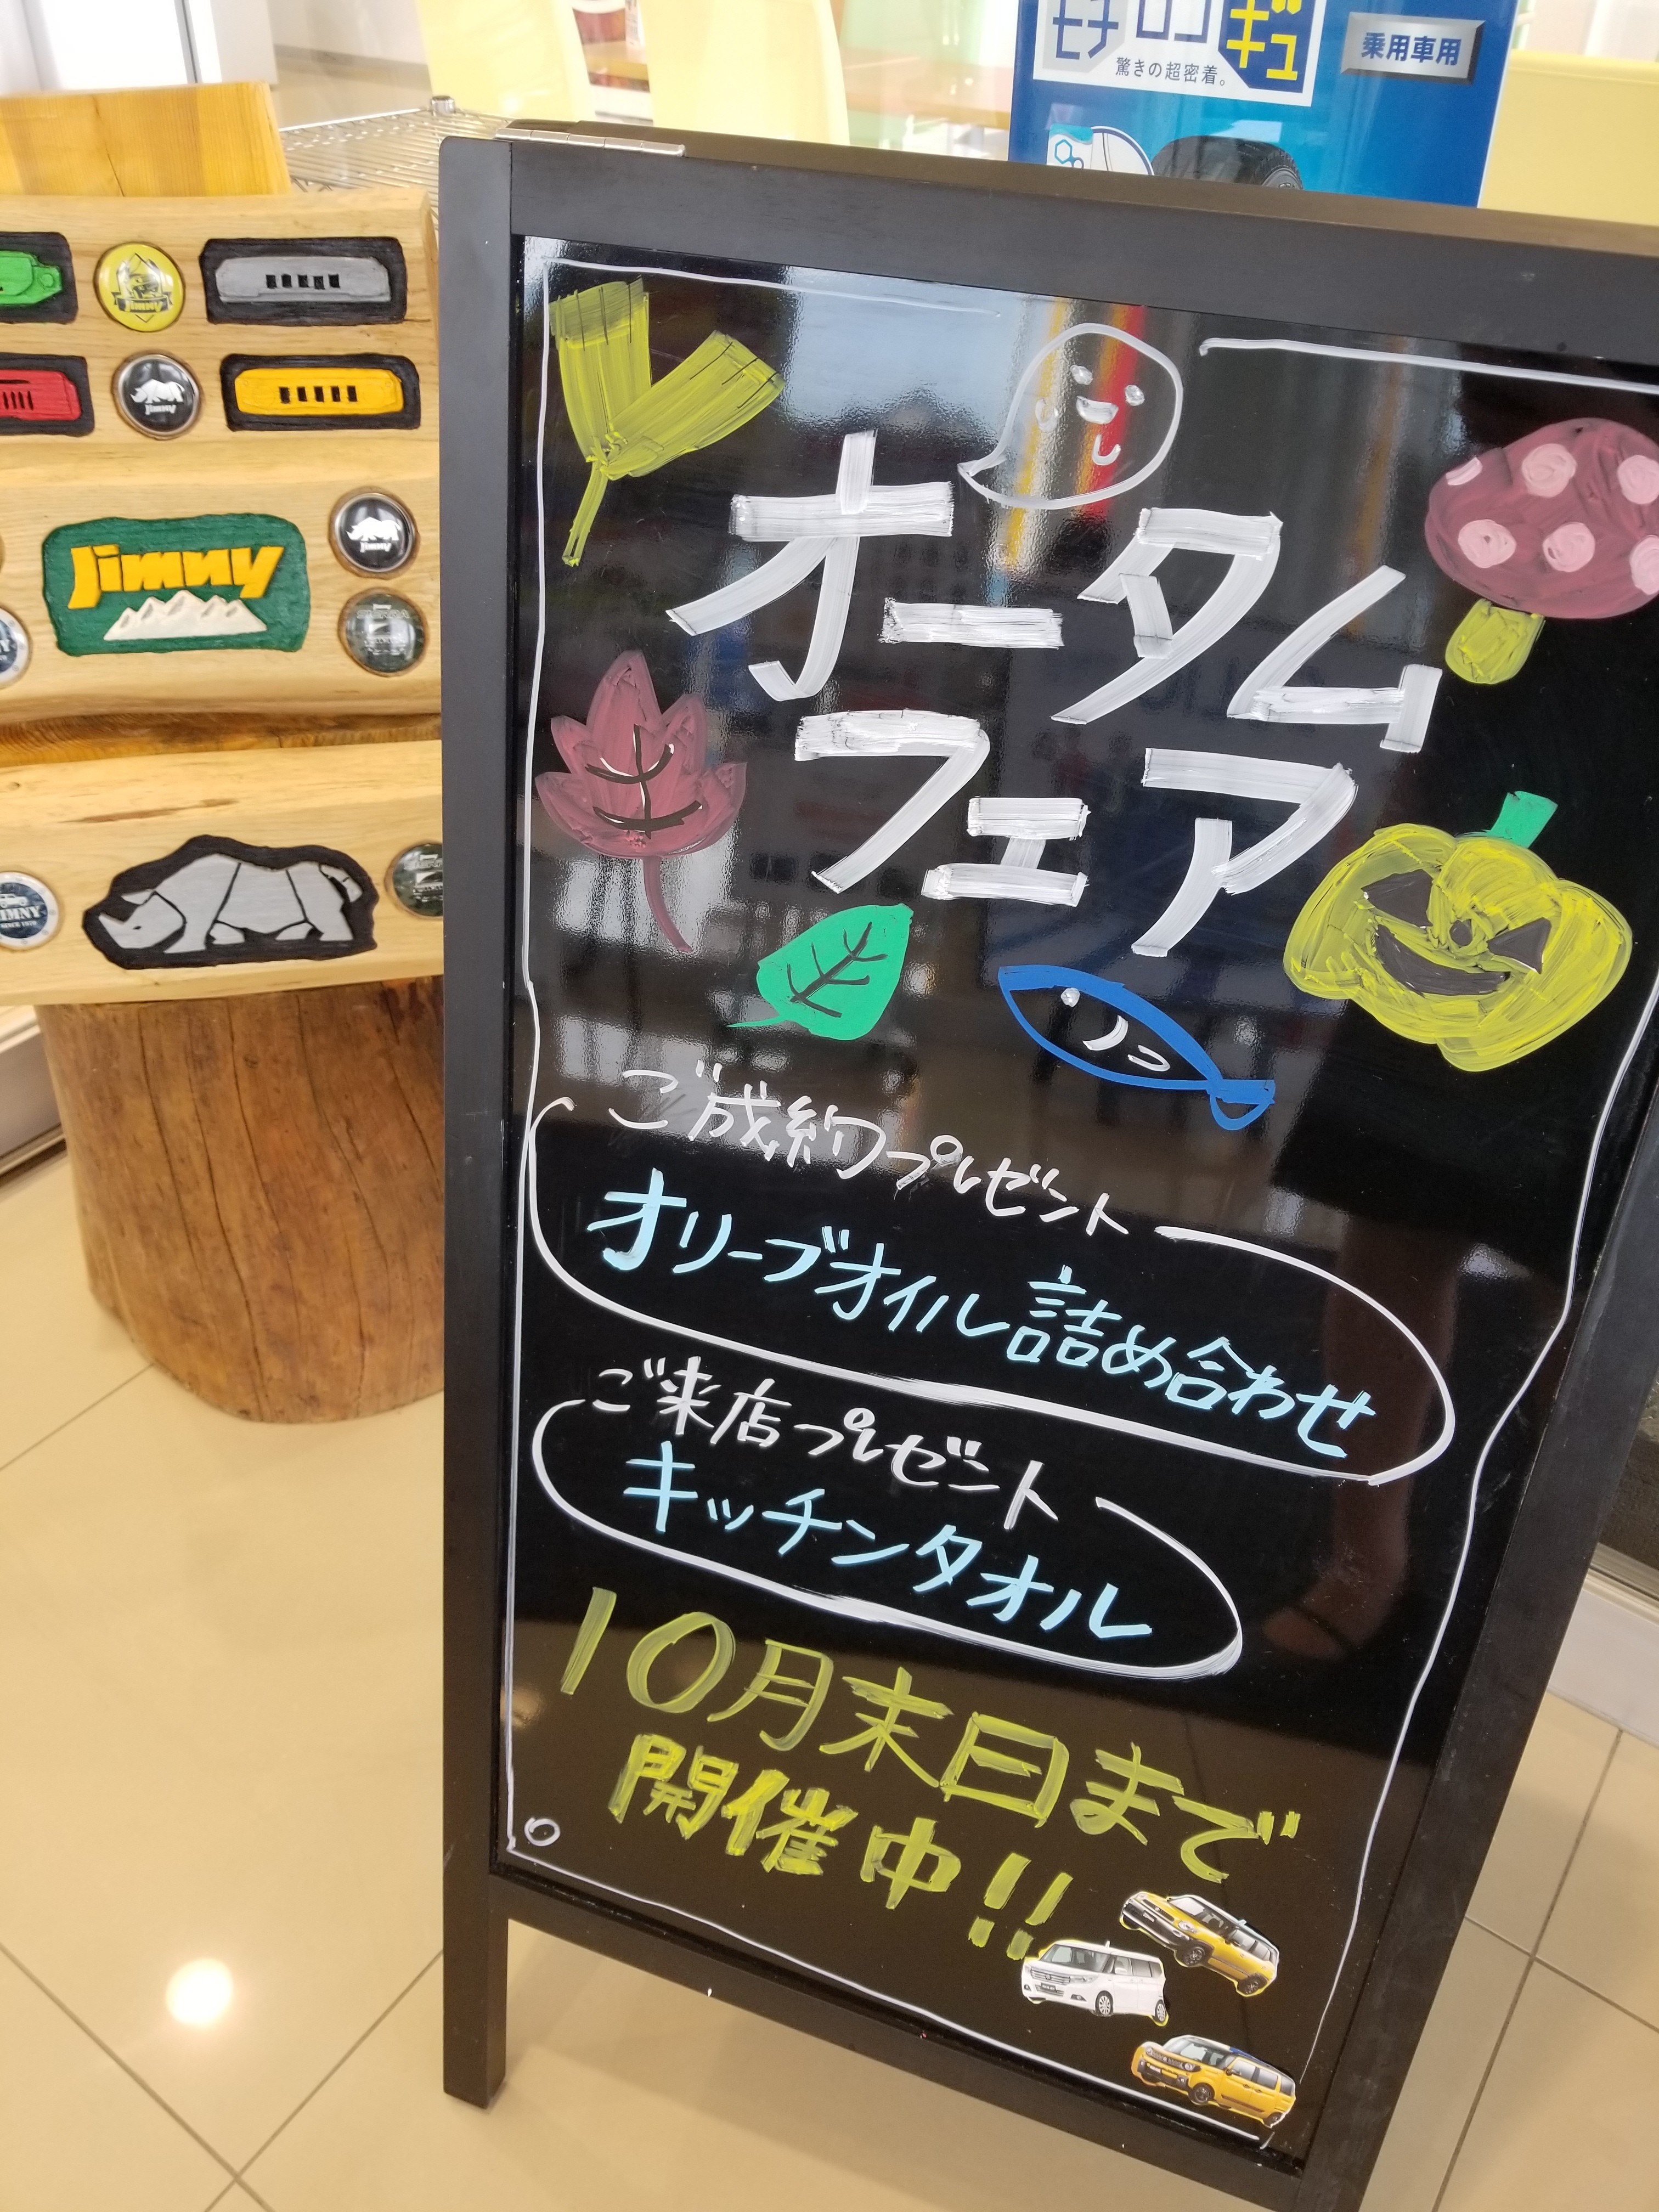 モチ ロン ギュ
驚きの超密着。
乗用車用
Jimny
Jimny
Jimny
Jimny
JIMNY
オータム
フェア
ご成約プレゼント
オリーブオイル詰め合わせ
ご来店プレゼント
キッチンタオル
10月末日まで
開催中!!